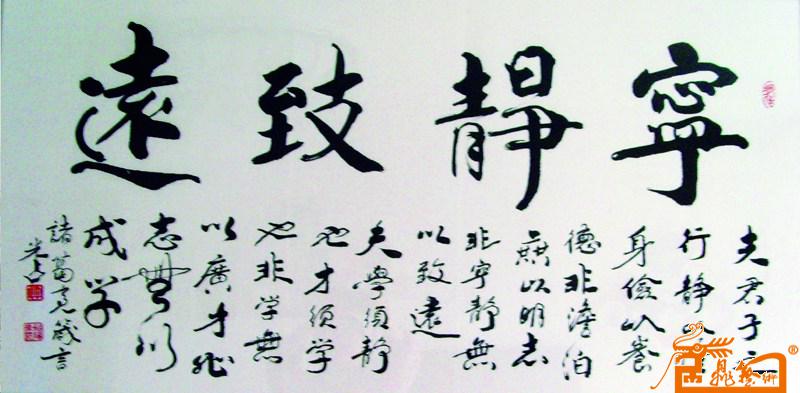 寧靜致遠
夫君子之
行静以
身儉以養
德非澹泊
無以明志
非寧静無
以致遠
夫學須静
也才須学
也非学無
以廣才非
志無以
成学
諸葛亮誡言